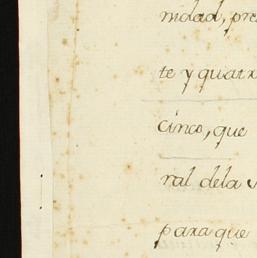 nidad, pre
te y quatr
cinco, que
ral dela v
para que